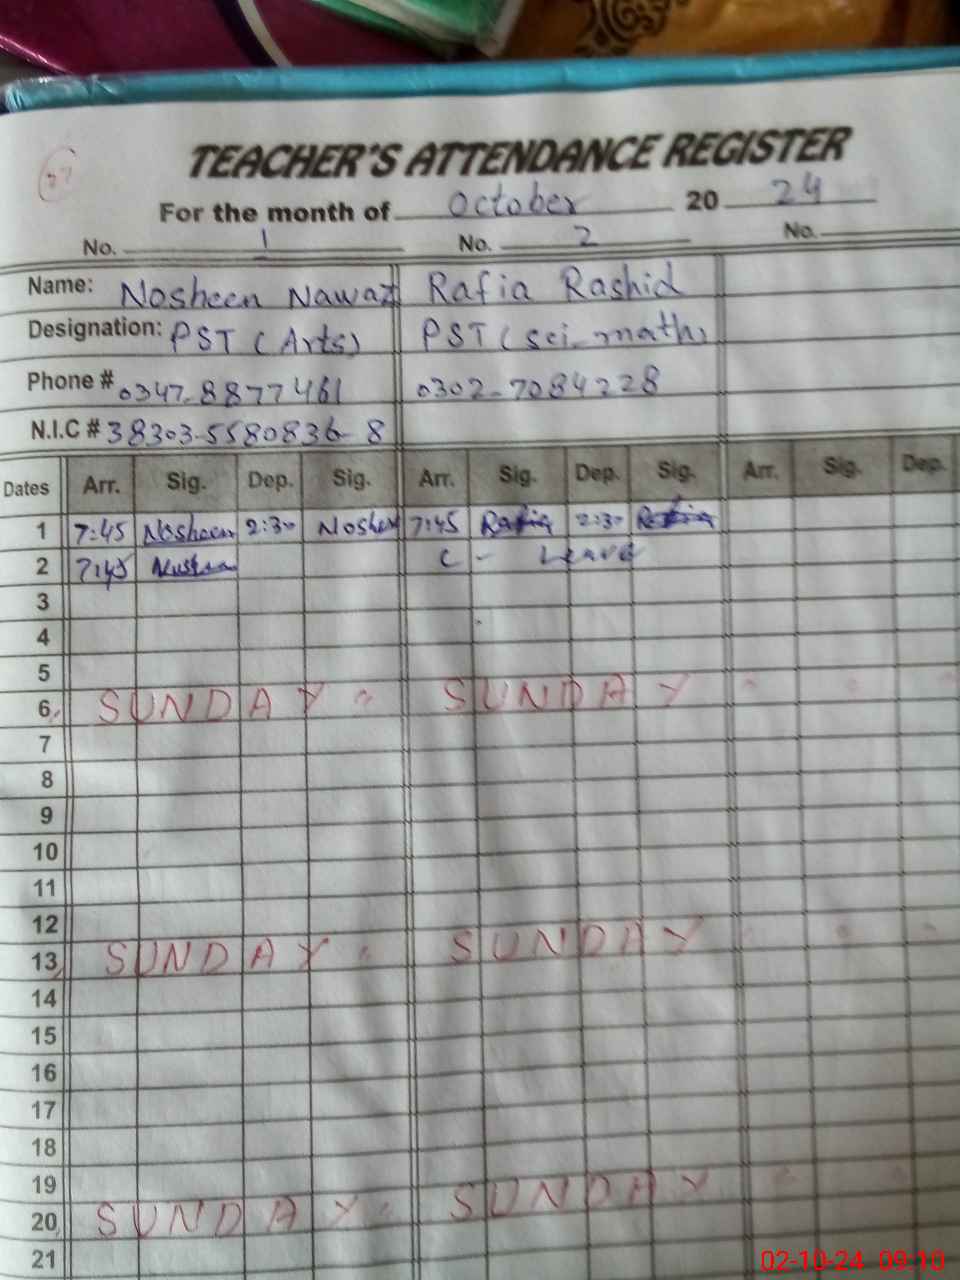 27
TEACHER'S ATTENDANCE REGISTER
For the month of October 20 24
No. 1 No. 2 No.
Name: Nosheen Nawaz Rafia Rashid
Designation: PST (Arts) PST (sci-math)
Phone # 0347-8877461 0302-7084228
N.I.C # 38303-5580836-8
Dates Arr. Sig. Dep. Sig. Arr. Sig. Dep. Sig. Arr. Sig. Dep.
1 7:45 Nosheen 2:30 Nosheen 7:45 Rafia 2:30 Rafia
2 7:45 Nosheen C - Leave
3
4
5
6 SUNDAY " SUNDAY " " "
7
8
9
10
11
12
13 SUNDAY " SUNDAY " " "
14
15
16
17
18
19
20 SUNDAY " SUNDAY " "
21
02-10-24 09:10